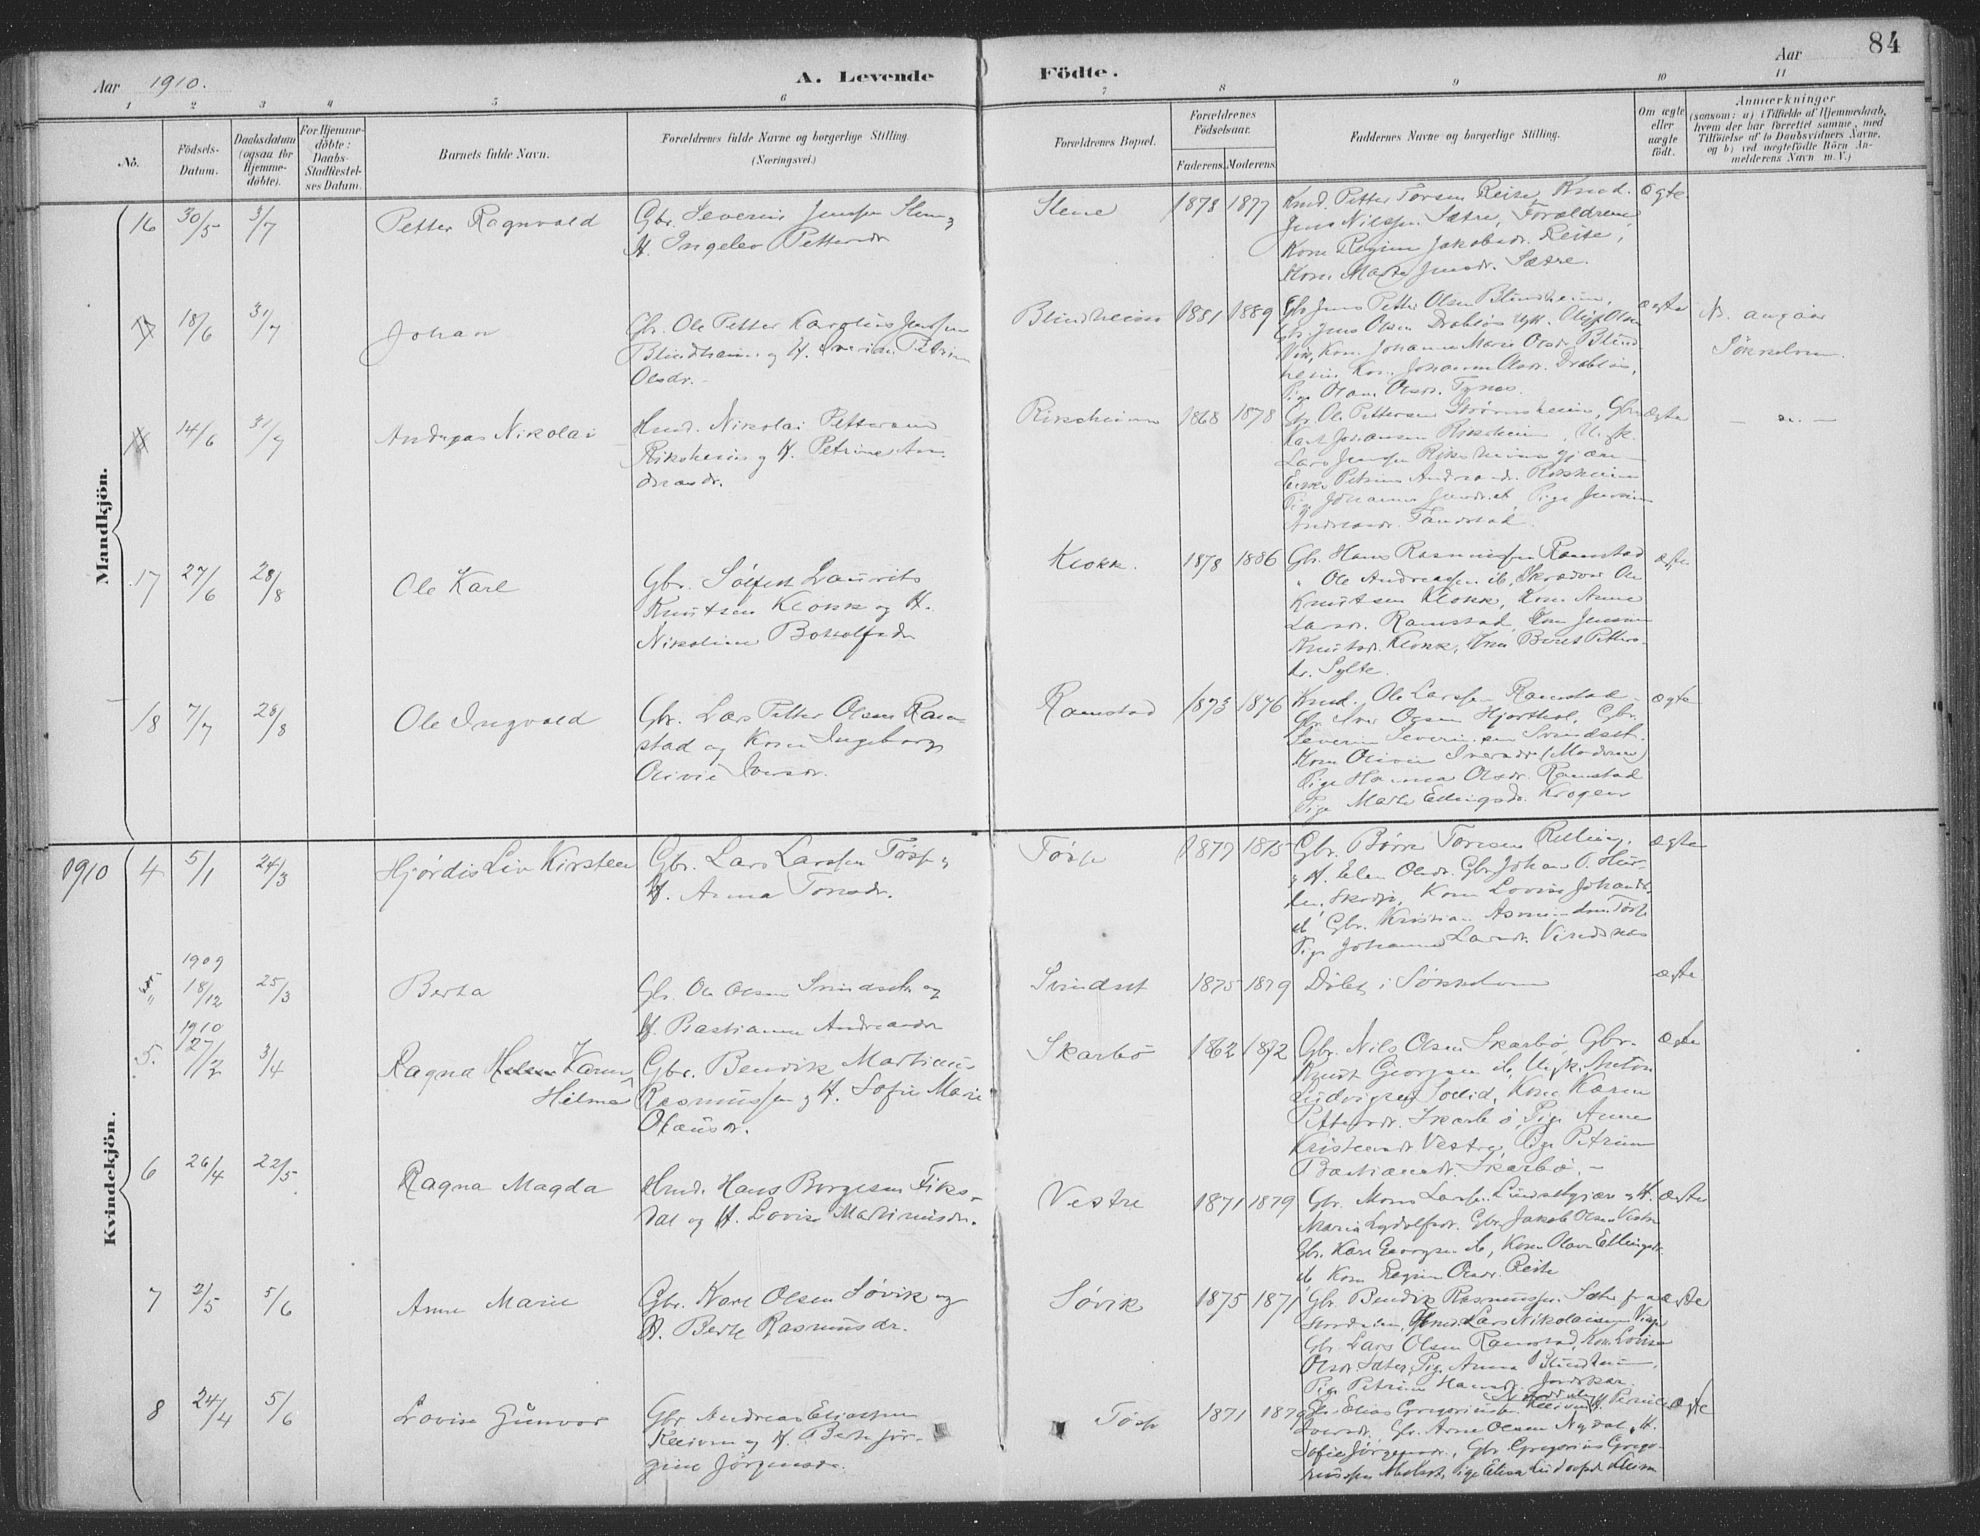 Aar 1910.
A. Levende
Födte.
Aar
84
1 2 3 4 5 6 7 8 9 10 11
No.
Födsels-
Datum.
Daabsdatum
(ogsaa for
Hjemme-
döbte).
For Hjemme-
döbte:
Daabs-
Stadfæstel-
ses Datum.
Barnets fulde Navn.
Forældrenes fulde Navne og borgerlige Stilling.
(Næringsvei.)
Forældrenes Bopæl.
Forældrenes
Födselsaar.
Faderens. Moderens.
Faddernes Navne og borgerlige Stilling.
Om ægte
eller
uægte
födt.
Anmærkninger
(saasom: a) i Tilfælde af Hjemmedaab,
hvem der har forrettet samme, med
Tilföielse af to Daabsvidners Navne,
og b) ved uægtefödte Börn An-
melderens Navn m. V.)
Mandkjön.
16 30/5 3/7 Petter Ragnvald
Gbr. Severin Jenssen Stene og
H. Ingelev Pettersdr
Stene 1878 1877
Kmd. Petter Torsen Reite, Kmd.
Jens Nilssen Sætre, Forældrene,
Kone Regine Jakobsdr. Reite,
Kone Marte Jensdr. Sætre.
ægte.
17 18/6 31/7 Johan
Gbr. Ole Petter Karolius Jenssen
Blindheim og H. Petrine
Olsdr.
Blindheim 1881 1889
Gbr Jens Petter Olsen Blindheim,
Gbr. Jens Olsen Drabløs
Vik, Kone Johanne Marie Olsdr. Blind-
heim, Kone Johanne Olsdr. Drabløs,
Pige Olsdr. Tynes.
ægte
Nb. angaar
Søkkelven.
18 14/6 31/7 Andreas Nikolai
Hmd. Nikolai Pettersen
Riksheim og H. Petrine An-
dreasdr.
Riksheim 1868 1878
Gbr. Ole Pettersen Strømsheim, Gbr.
Karl Johansen Riksheim, Ungk.
Lars Jenssen Riksheim
Petrine Andreasdr. Riksheim
Pige Johanne Jensdr. ib, Pige
Andreasdr. Tandstad.
ægte
17 27/6 28/8 Ole Karl
Gbr. Sølfest Laurits
Knutsen Klokk og H.
Nikoline Botolfsdr
Klokk. 1878 1886
Gbr. Hans Rasmussen Ramstad
" Ole Andreassen ib, Skrædder Ole
Knutsen Klokk, Kone Anne
Larsdr. Ramstad, Kone
Knutsdr. Klokk, Kone Beret Petters-
dr. Sylte.
ægte
18 7/7 28/8 Ole Ingvald
Gbr. Lars Petter Olsen Ram-
stad og Kone Ingeborg
Olivie Iversdr.
Ramstad 1873 1876
Kmd. Ole Larssen Ramstad
Gbr. Iver Olsen Hjorthol, Gbr.
Severin Severinsen Svindseth.
Kone Olivie Iversdr (Moderen)
Pige Hanna Olsdr. Ramstad
Pige Marte Ellingsdr. Krogen
ægte
Kvindekjön.
1910 4 5/1 24/3 Hjørdis Liv Kirsteen
Gbr. Lars Larssen Tøsse og
H. Anna Toresdr.
Tøsse 1877 1875
Gbr. Børre Toresen Relling,
og H. Elen Olsdr. Gbr Johan O. Hur-
len, Skodje, Kone Lovise Johansdr.
ib, Gbr. Kristian Asmundsen Tøsse
Pige Johanne Larsdr. Vindsnes
ægte
5 1909 18/12 25/3 Berta
Gbr. Ole Olsen Svindset og
H. Bastianna Andreasdr
Svindset 1875 1879 Døbt i Søkkelven ægte
5. 1910 27/2 3/4 Ragna Karen
Hilma
Gbr. Bendik Martinus
Rasmussen og H. Sofie Marie
Olausdr.
Skarbø 1862 1872
Gbr. Nils Olsen Skarbø, Gbr.
Knut Georgsen ib, Ungk. Anton
Ludvigsen Sollid, Kone Karen
Pettersdr. Skarbø, Pige Anne
Kristensdr. Vestre, Pige Petrine
Bastiansdr. Skarbø.
ægte
6 26/4 22/5 Ragna Magda
Hmd. Hans Borgesen Fiks-
dal og H. Lovise Martinusdr.
Vestre 1871 1879
Gbr. Mons Larssen Lindsetgjære og H.
Maria Lydolfsdr. Gbr. Jakob Olsen Vestre
Gbr. Karl Georgsen ib, Kone Olave Ellingsdr.
ib Kone Regine Olsdr. Reite
ægte
7 2/5 5/6 Anne Marie
Gbr. Karl Olsen Søvik og
H. Berte Rasmusdr.
Søvik 1875 1871
Gbr. Bendik Rasmussen Sæter fra
Stordalen, Hmd. Lars Nikolaisen
Gbr. Lars Olsen Ramstad, Kone Lovise
Olsdr. Sæter, Pige Anna Blindheim,
Pige Petrine Hansdr.
ægte
8 24/4 5/6 Lovise Gunvor
Gbr. Andreas Eliassen
Kleiven og H. Berte Jør-
gine Jørgensdr.
Tøsse 1871 1879
Gbr. Elias Gregoriussen Kleiven H.
Iversdr, Gbr. Arne Olsen Nydal og H.
Sofie Jørgensdr., Gbr. Gregorius Grego-
riussen
ægte